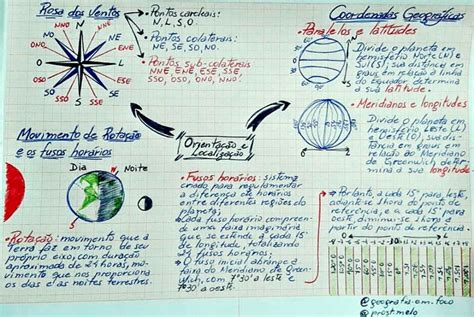 Rosa dos Ventos
N
NNO
NNE
NO
NE
ONO
ENE
O
L
OSO
ESE
SO
SE
SSO
SSE
S
• Pontos cardeais:
N, L, S, O.
• Pontos colaterais:
NE, SE, SO, NO.
• Pontos sub-colaterais
NNE, ENE, ESE, SSE
SSO, OSO, ONO, NNO.
Coordenadas Geográficas
• Paralelos e latitudes
N
S
Divide o planeta em
hemisfério Norte (N) e
Sul (S); sua distância em
graus em relação à linha
do Equador determina
a sua latitude.
• Meridianos e longitudes
O
L
Divide o planeta em
hemisfério Leste (L)
e Oeste (O), sua dis-
tância em graus em
relação ao Meridiano
de Greenwich deter-
mina a sua longitude.
Orientação e
Localização
Movimento de Rotação
e os fusos horários
Dia
N
Noite
• Rotação: movimento que a
Terra faz em torno de seu
próprio eixo, com duração
aproximada de 24 horas, mo-
vimento que nos proporciona
os dias e as noites terrestres.
• Fusos horários: sistema
criado para regulamentar
a diferença de horários
entre diferentes regiões do
planeta;
Cada fuso horário compreen-
de uma faixa imaginária
que se estende a cada 15°
de longitude, totalizando
24 fusos horários;
O fuso inicial abrange a
faixa do Meridiano de Green-
wich, com 7°30' a leste e
7°30' a oeste.
Portanto, a cada 15° para leste,
adianta-se 1 hora do ponto de
referência, e a cada 15° para
oeste, diminui-se 1 hora a
partir do ponto de referência.
@geografia_em_foco
@prof.melo